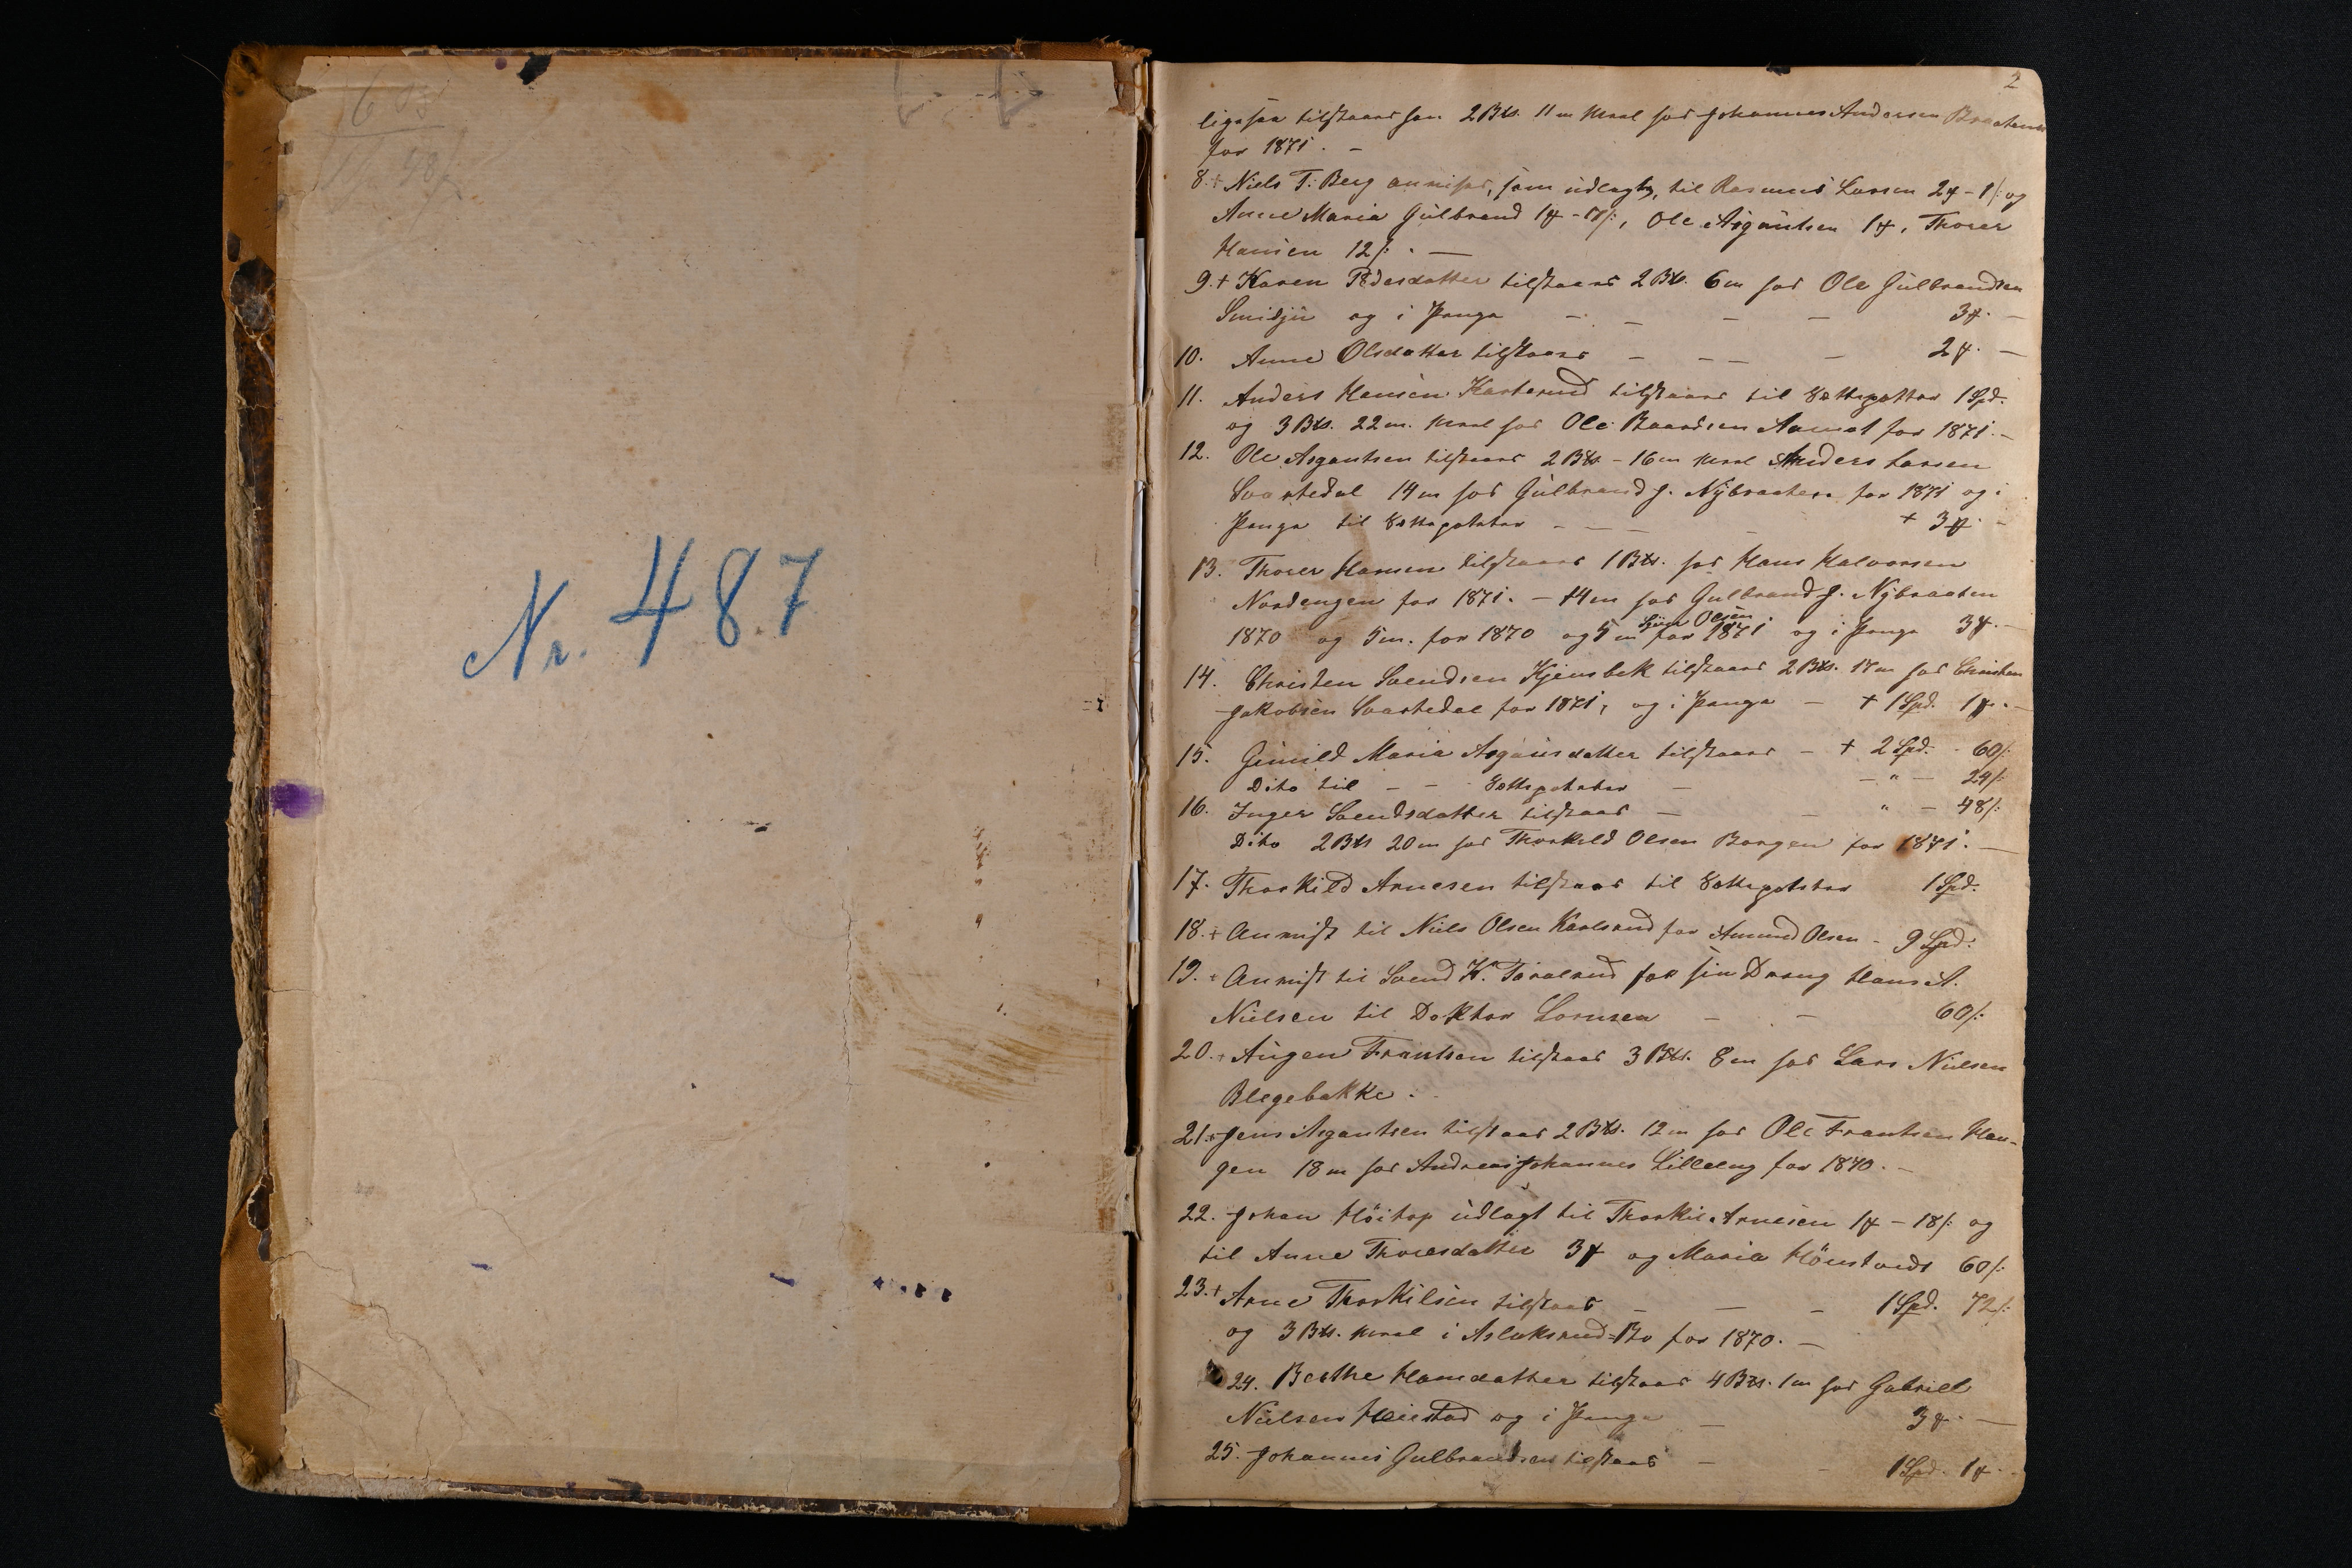 Nr. 487
2
ligesaa tilstaaes han 2 Bts. 11 m Meel hos Johannes Andersen Braaten
for 1871. -
8. + Niels T. Berg anvises, som udlagt, til Rasmus Larsen 2 ꝟ - 1 /: og
Anne Maria Gulbrand 1 ꝟ - 18 /:, Ole Asgautsen 1 ꝟ, Thorer
Hansen 12 /: . —
9. + Karen Pedersdatter tilstaaes 2 Bts. 6 m hos Ole Gulbrandsen
Smidju og i Penge - - - - 3 ꝟ. -
10. Anne Olsdatter tilstaaes - - - - 2 ꝟ. -
11. Anders Hansen Karterud tilstaaes til Sættepoteter 1 Spd.
og 3 Bts. 22 m. Meel hos Ole Baardsen Aamot for 1871. -
12. Ole Asgautsen tilstaaes 2 Bts - 16 m Meel Anders Larsen
Svartedal 14 m hos Gulbrand J. Nybraaten for 1871 og i
Penge til Sættepoteter - - - - + 3 ꝟ. -
13. Thorer Hansen tilstaaes 1 Bts. hos Hans Halvorsen
Nordengen for 1871. - 14 m hos Gulbrand J. Nybraaten
Olsen
1870 og 5 m. for 1870 og 5 m for 1871 og i Penge 3 ꝟ. -
14. Christen Svendsen Kjensbek tilstaaes 2 Bts. 17 m hos Christen
Jakobsen Svartedal for 1871, og i Penge - + 1 Spd. 1 ꝟ. -
15. Gunild Maria Asgautsdatter tilstaaes - + 2 Spd. - 60 /:
Dito til - - Sættepoteter - - " - 24 /:
16. Inger Svendsdatter tilstaaes - - " - 48 /:
Dito 2 Bts 20 m hos Thorkild Olsen Borgen for 1871. -
17. Thorkild Arnesen tilstaaes til Sættepoteter 1 Spd.
18. + Anvist til Niels Olsen Karlsrud for Amund Olsen - 9 Spd.
19. + Anvist til Svend K. Taralrud for sin Dreng Hans A.
Nielsen til Doktor Lorusen - - 60 /:
20. + Augen Frantsen tilstaaes 3 Bts. 8 m hos Lars Nielsen
Blegebakke.
21. + Jens Asgautsen tilstaaes 2 Bts. 12 m hos Ole Frantsen Hau-
gen 18 m hos Andreas Johannes Lilleeng for 1870. -
22. Johan Höitop udlagt til Thorkil Arnesen 1 ꝟ - 18 /: og
til Anne Thoresdatter 3 ꝟ og Maria 60 /:
23. + Arne Thorkilsen tilstaaes - - - 1 Spd. 72 /:
og 3 Bts. Meel i Aslaksrud=Bo for 1870. -
24. Berthe Hansdatter tilstaaes 4 Bts. 1 m hos Gabriel
Nielsen Heiestad og i Penge - 3 ꝟ. -
25. Johannes Gulbrandsen tilstaaes - - 1 Spd. 1 ꝟ. -